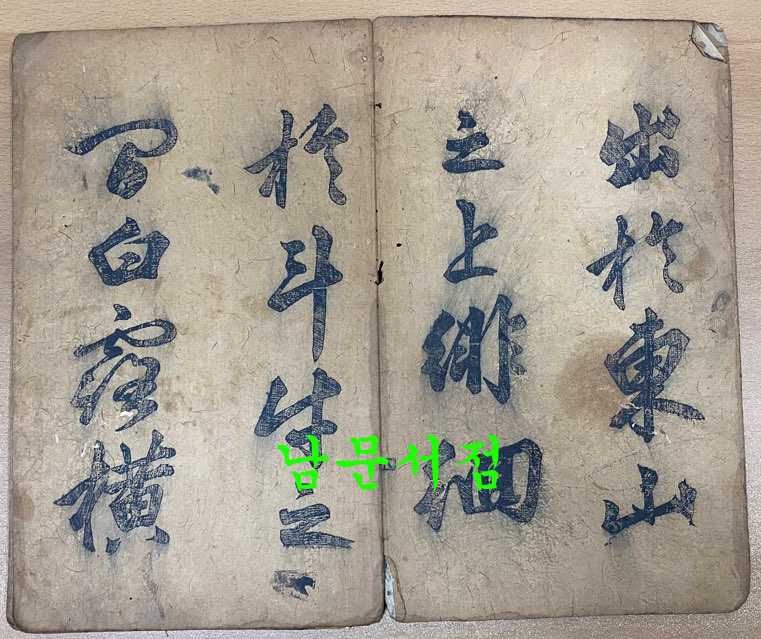 出於東山
之上徘徊
於斗牛之
間白露橫
남문서점